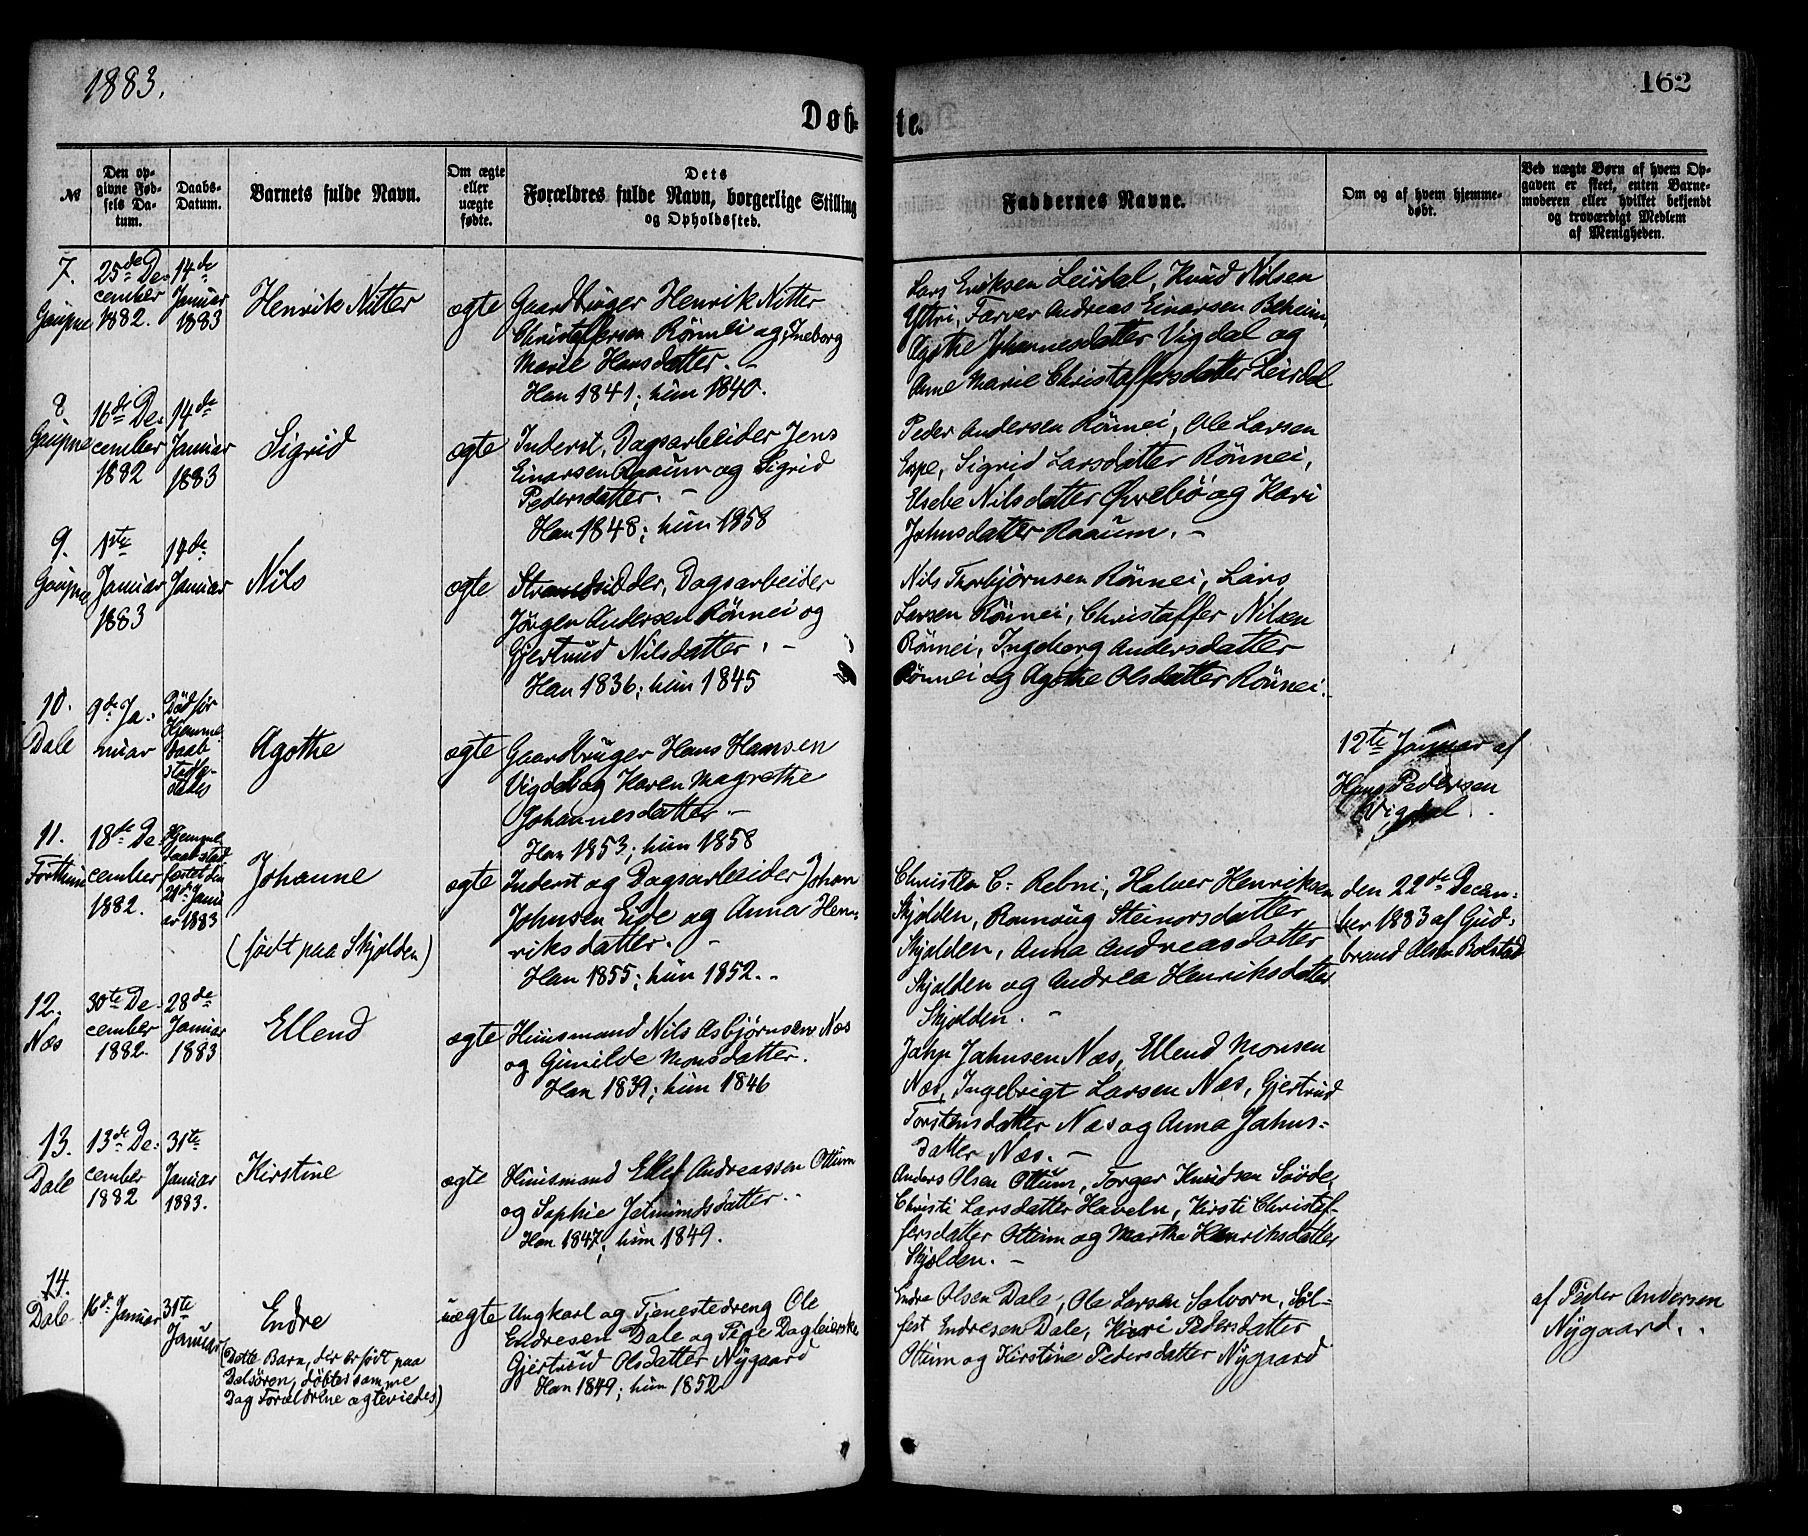 1883.
162
Døb-
te.
№
Den op-
givne Fød-
sels Da-
tum.
Daabs-
Datum.
Barnets fulde Navn.
Om ægte
eller
uægte
fødte.
Dets
Forældres fulde Navn, borgerlige Stilling
og Opholdssted.
Faddernes Navne.
Om og af hvem hjemme-
døbt.
Ved uægte Børn af hvem Op-
gaven er skeet, enten Barne-
moderen eller hvilket bekjendt
og troværdigt Medlem
af Menigheden.
7.
Gaupne
25de De-
cember
1882.
14de
Januar
1883
Henrik Nitter
ægte
Gaardbruger Henrik Nitter
Christaffersen Rönnei og Ineborg
Marie Hansdatter. -
Han 1841; hun 1840.
Lars Eriksen Leirdal, Knud Nilsen
Yttri, Farver Andreas Einarsen Beheim,
Agothe Johannesdatter Vigdal og
Anne Marie Christaffersdatter Leirdal
8
Gaupne
16de De-
cember
1882
14de
Januar
1883
Sigrid
ægte
Inderst, Dagsarbeider Jens
Einarsen Raaum og Sigrid
Pedersdatter. -
Han 1848; hun 1858
Peder Andersen Rönnei, Ole Larsen
Espe, Sigrid Larsdatter Rönnei,
Elsebe Nilsdatter Øvrebö og Kari
Johnsdatter Raaum. -
9.
Gaupne
1ste
Januar
1883
14de
Januar
Nils
ægte
Strandsidder, Dagsarbeider
Jörgen Andersen Rönnei og
Gjertrud Nilsdatter. -
Han 1836; hun 1845
Nils Thorbjörnsen Rönnei, Lars
Larsen Rönnei, Christaffer Nilsen
Rönnei, Ingeborg Andersdatter
Rönnei og Agothe Olsdatter Rönnei.
10.
Dale
9de Ja-
nuar
Död för
Hjemme
daab
stadfæ-
stedes
Agothe
ægte
Gaardbruger Hans Hansen
Vigdal og Karen Magrethe
Johannesdatter -
Han 1853; hun 1858
12te Januar af
Hans Pedersen
Vigdal.
11.
Fortun
18de De-
cember
1882.
Hjemme
daab stad
fæstet den
21de Janu
ar 1883
Johanne
(födt paa Skjolden)
ægte
Inderst og Dagsarbeider Johan
Johnsen Eide og Anna Hen-
riksdatter. -
Han 1855; hun 1852.
Christen C. Rebni, Halvor Henriksen
Skjolden, Rannoug Steinorsdatter
Skjolden, Anna Andreasdatter
Skjolden og Andrea Henriksdatter
Skjolden. -
den 22de Decem-
ber 1883 af Gud-
brand Olsen Bolstad
12.
Næs
30te De-
cember
1882.
28de
Januar
1883
Ellend
ægte
Huusmand Nils Asbjörnsen Næs
og Gunilde Monsdatter.
Han 1839; hun 1846
Jahn Jahnsen Næs, Ellend Monsen
Næs, Ingebrigt Larsen Næs, Gjertrud
Torstensdatter Næs og Anna Jahns-
datter Næs. -
13.
Dale
13de De-
cember
1882
31te
Januar
1883.
Kirstine
ægte
Huusmand Ellef Andreassen Ottum
og Sophie Jetmundsdatter.
Han 1847; hun 1849.
Anders Olsen Ottum, Torger Knudsen Sörde,
Christi Larsdatter Haveln, Kirsti Christaf-
fersdatter Ottum og Marthe Henriksdatter
Skjolden. -
14.
Dale
16de Januar
31te
Januar
Endre
(Dette Barn, der er födt paa
Dalsören, döbtes samme
Dag Forældrene ægteviedes)
uægte
Ungkarl og Tjenestedreng Ole
Endresen Dale og Pige Dagleierske
Gjertrud Olsdatter Nygaard
Han 1849; hun 1852
Endre Olsen Dale, Ole Larsen Solvorn, Söl-
fest Endresen Dale, Kari Pedersdatter
Ottum og Kirstine Pedersdatter Nygaard
af Peder Andersen
Nygaard.